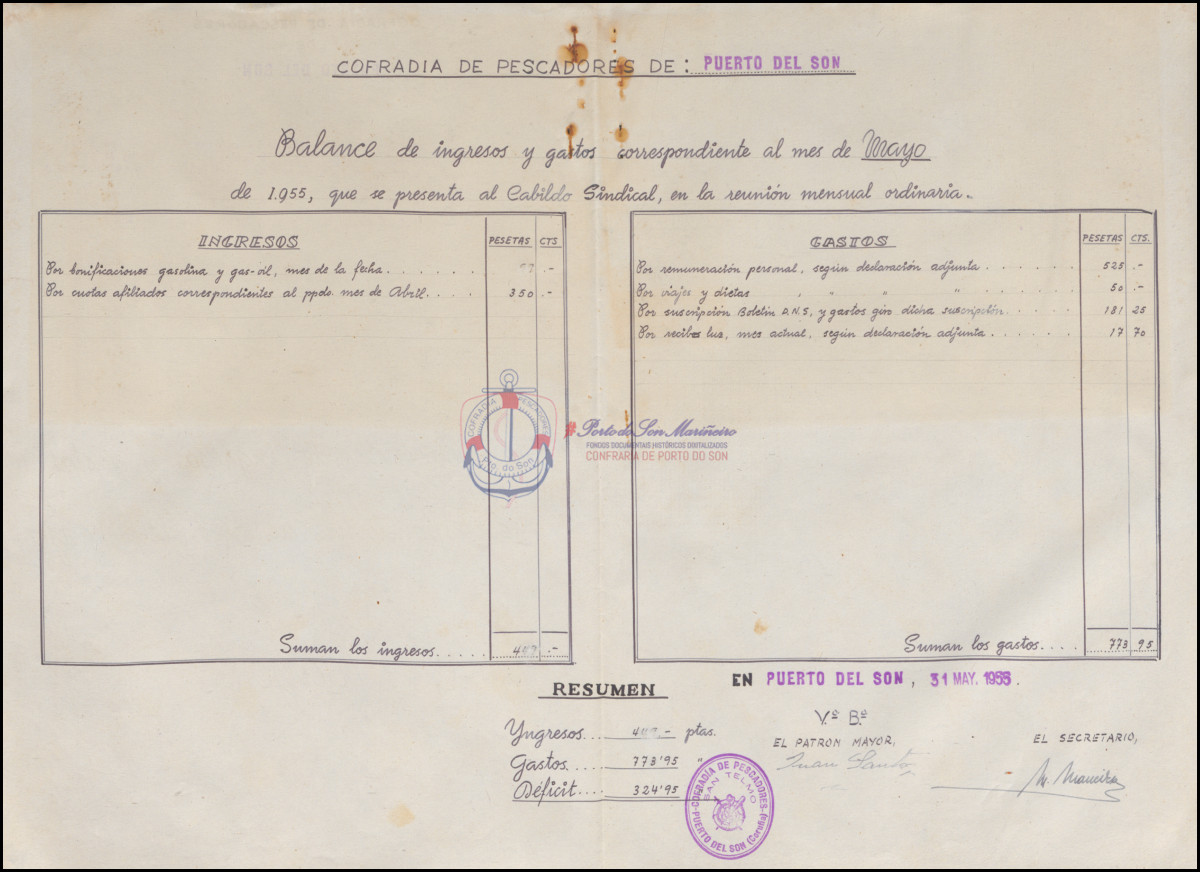 COFRADIA DE PESCADORES DE: PUERTO DEL SON
Balance de ingresos y gastos correspondiente al mes de Mayo
de 1.955, que se presenta al Cabildo Sindical, en la reunión mensual ordinaria.-
INGRESOS PESETAS CTS
Por bonificaciones gasolina y gas-oil, mes de la fecha. . . . . . . .-
Por cuotas afiliados correspondientes al ppdo. mes de Abril. . . . . 350 .-
Suman los ingresos. . . . . . 449 .-
GASTOS PESETAS CTS.
Por remuneración personal, según declaración adjunta . . . . . . . 525 .-
Por viajes y dietas " " " " . . . . . . 50 .-
Por suscripción Boletín D.N.S, y gastos giro dicha suscripción. . . . . . 181 25
Por recibos luz, mes actual, según declaración adjunta . . . . . . . 17 70
Suman los gastos. . . . 773 95
COFRADIA PESCADORES
Pto. do Son
#Porto do Son Mariñeiro
FONDOS DOCUMENTAIS HISTÓRICOS DIXITALIZADOS
CONFRARÍA DE PORTO DO SON
RESUMEN
Yngresos. . . . 449.- ptas.
Gastos. . . . . 773'95 "
Déficit. . . . 324'95
EN PUERTO DEL SON, 31 MAY. 1955.
Vº Bº
EL PATRON MAYOR,
Juan Santos
EL SECRETARIO,
M. Maneiro
COFRADIA DE PESCADORES
SAN TELMO
PUERTO DEL SON (Coruña)